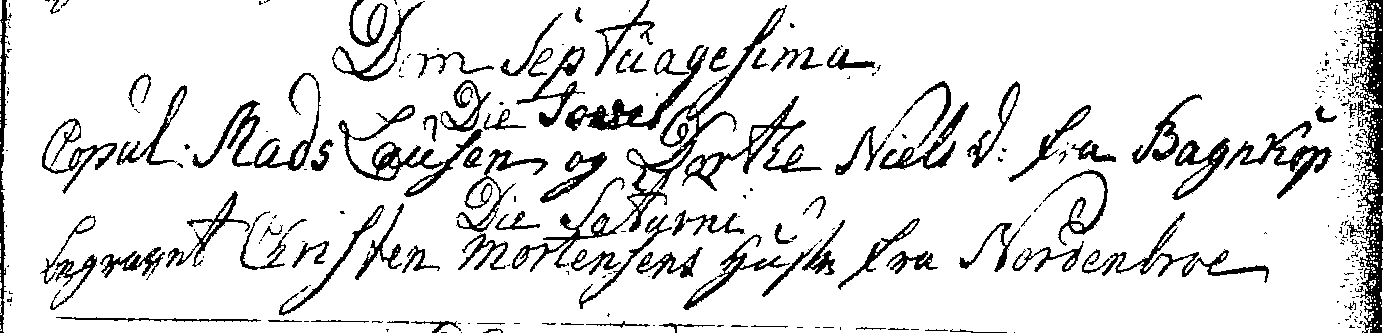 Dom Septuagesima
Die
Copul: Mads Lausen og Dorthe Niels D: fra Bagnkop
Die Saturni
begravet Christen Mortensens Hustr fra Nordenbroe